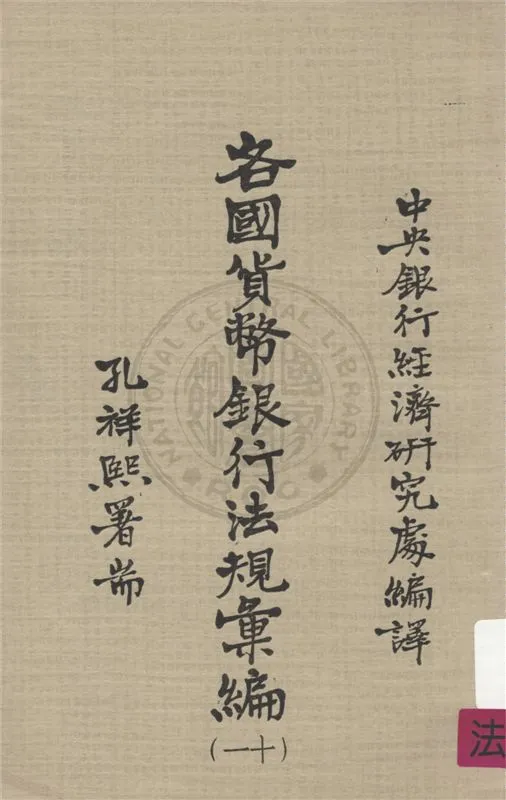 中央銀行經濟研究處編譯
各國貨幣銀行法規彙編
(十一)
孔祥熙署耑
NATIONAL CENTRAL LIBRARY
法